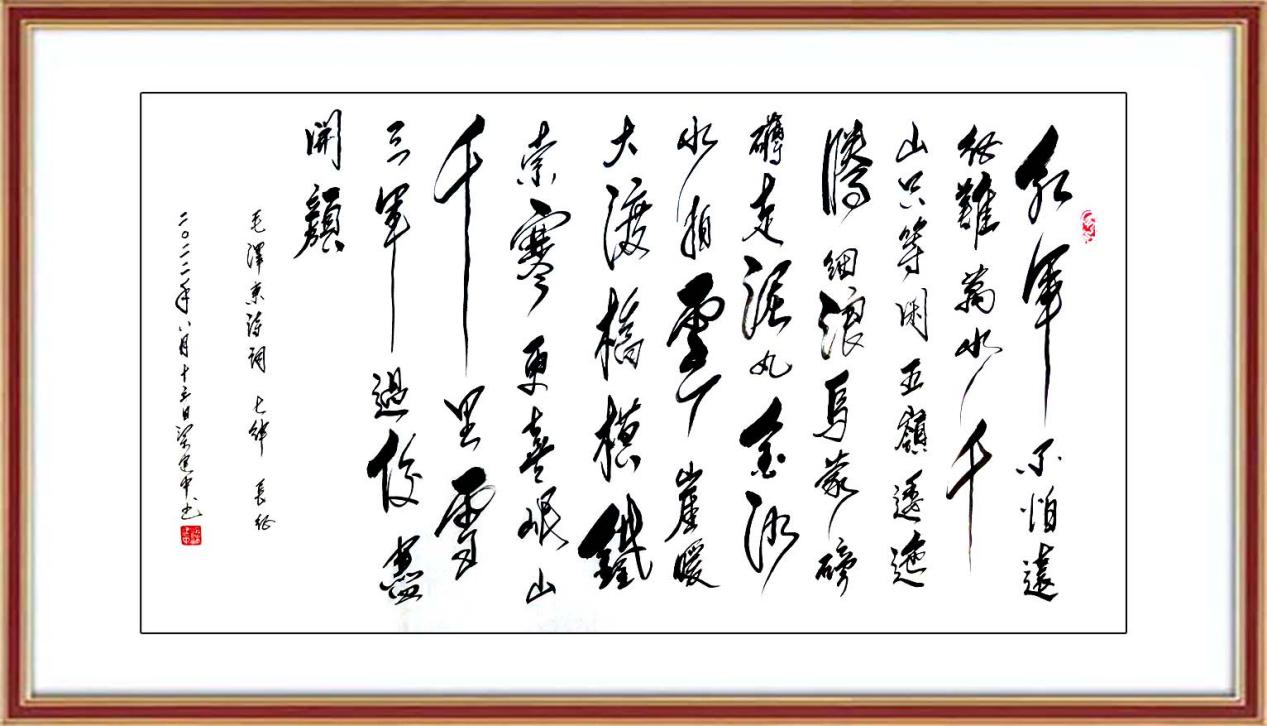 紅軍不怕遠
征難萬水千
山只等閑五嶺逶迤
騰細浪烏蒙磅
礴走泥丸金沙
水拍雲崖暖
大渡橋横鐵
索寒更喜岷山
千里雪
三軍過後盡
開顏
毛澤東诗詞 七律 長征
二〇二二年八月十三日梁建中书